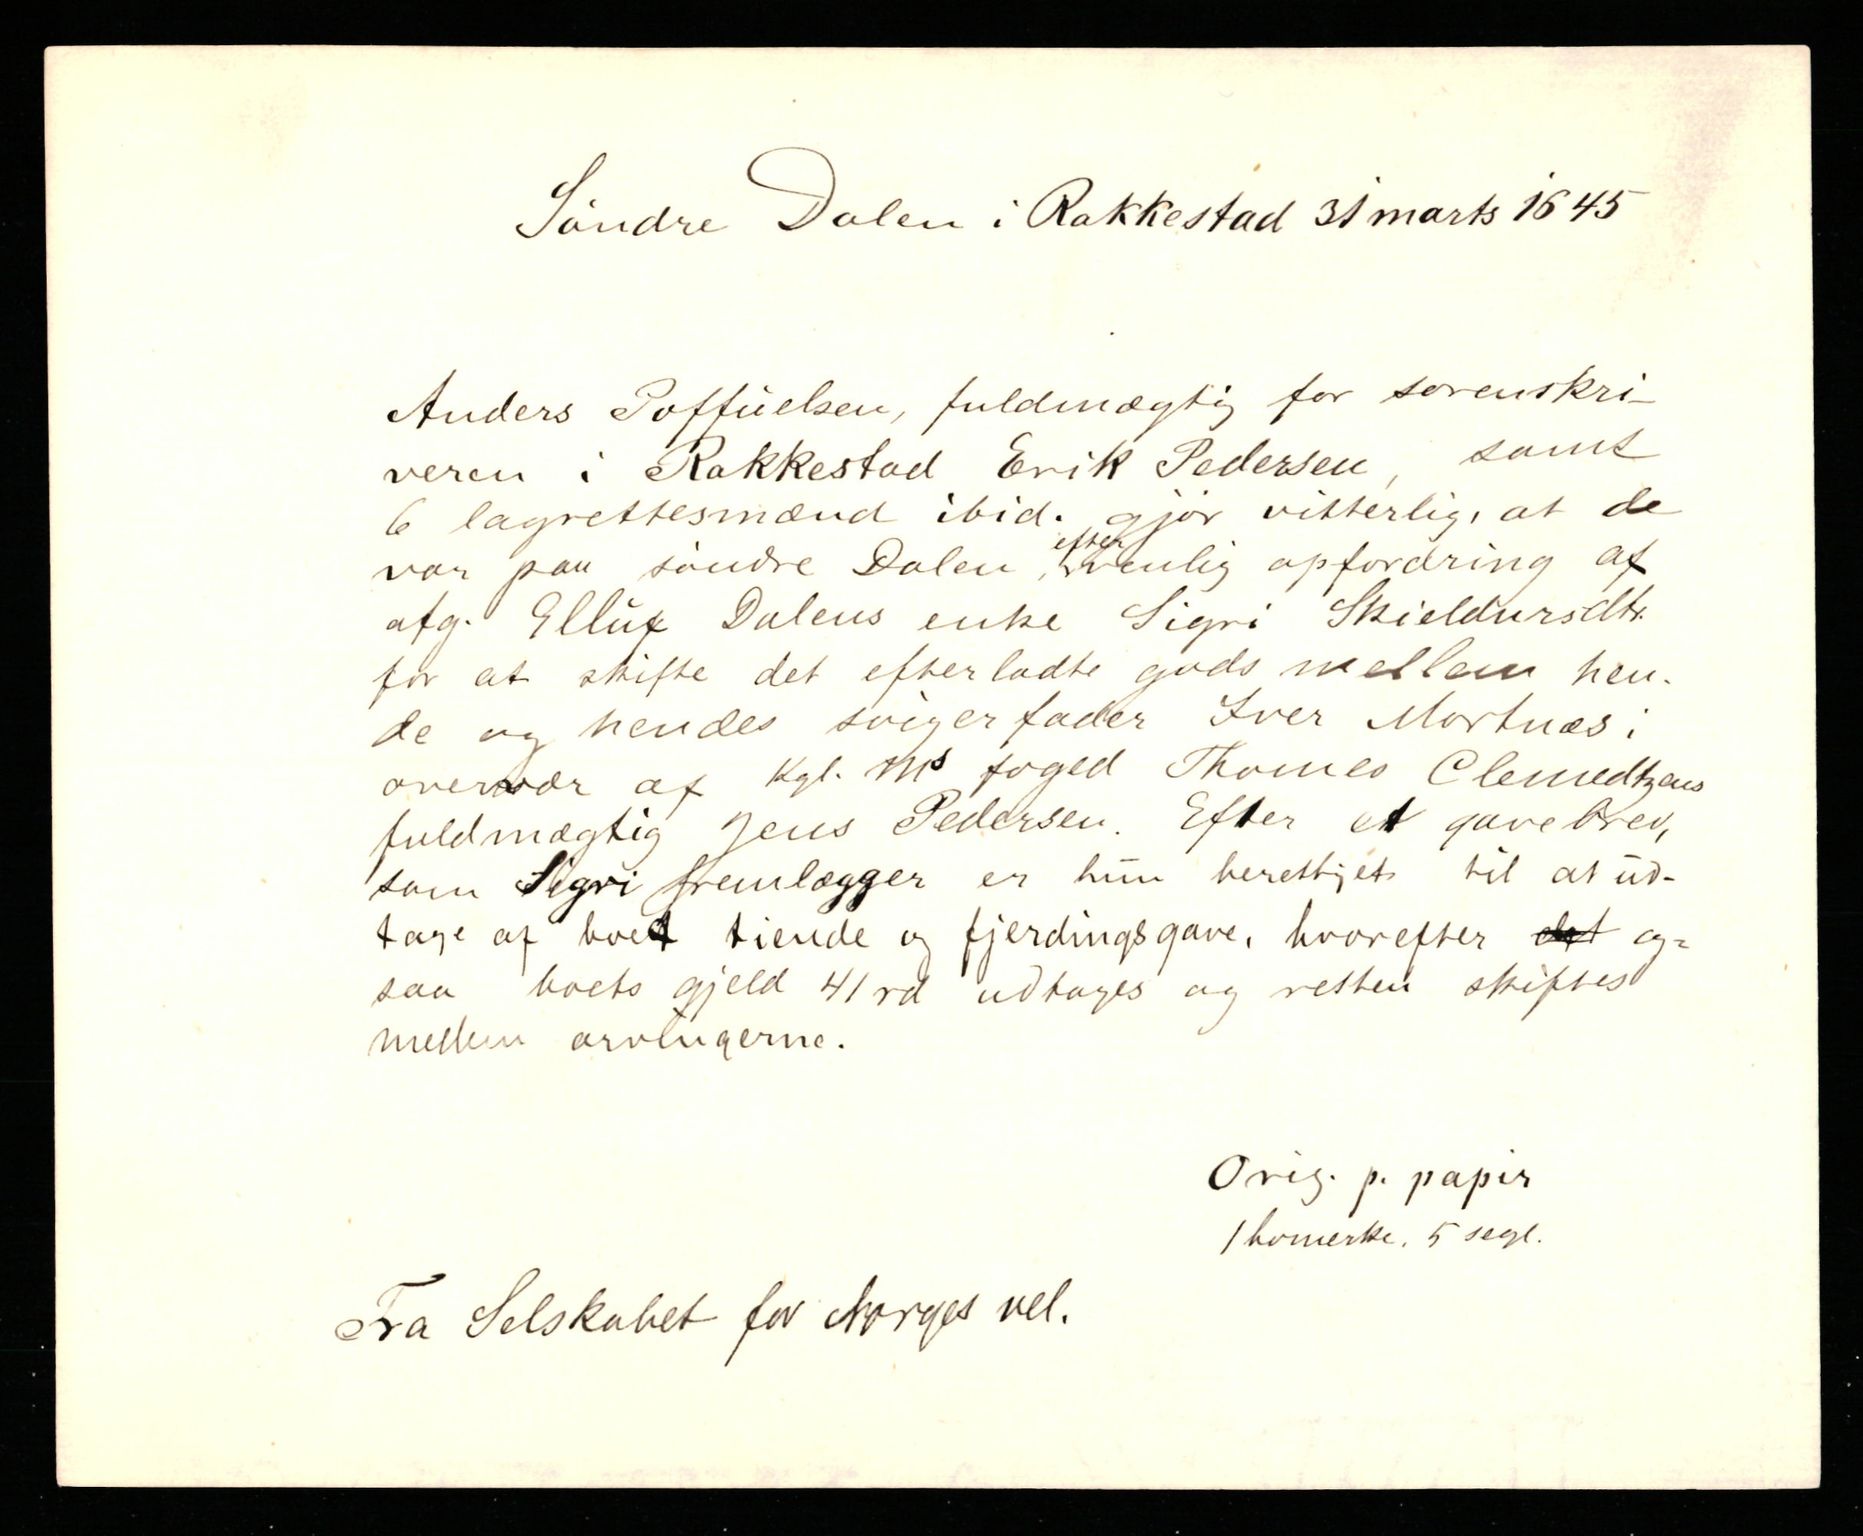 Söndre Dalen i Rakkestad 31 marts 1645
Anders Poffüelsen, fuldmægtig for sorenskri-
veren i Rakkestad Erik Pedersen, samt
6 lagrettesmænd ibid. gjör vitterlig, at de
var paa söndre Dalen, efter venlig opfordring af
afg. Ellüf Dalens enke Sigri Skieldursdtr.
for at skifte det efterladte gods mellem hen-
de og hendes svigerfader Iver Mortnæs i
overvær af Kgl. Ms foged Thomes Clemedtzens
fuldmægtig Jens Pedersen. Efter et gavebrev,
som Sigri fremlægger er hün berettiget til at üd-
tage af boet tiende og fjerdingsgave, hvorefter det og-
saa boets gjeld 41 rd udtages og resten skiftes
mellem arvingerne.
Orig. p. papir
1 bomerke. 5 segl.
Fra Selskabet for Norges vel.